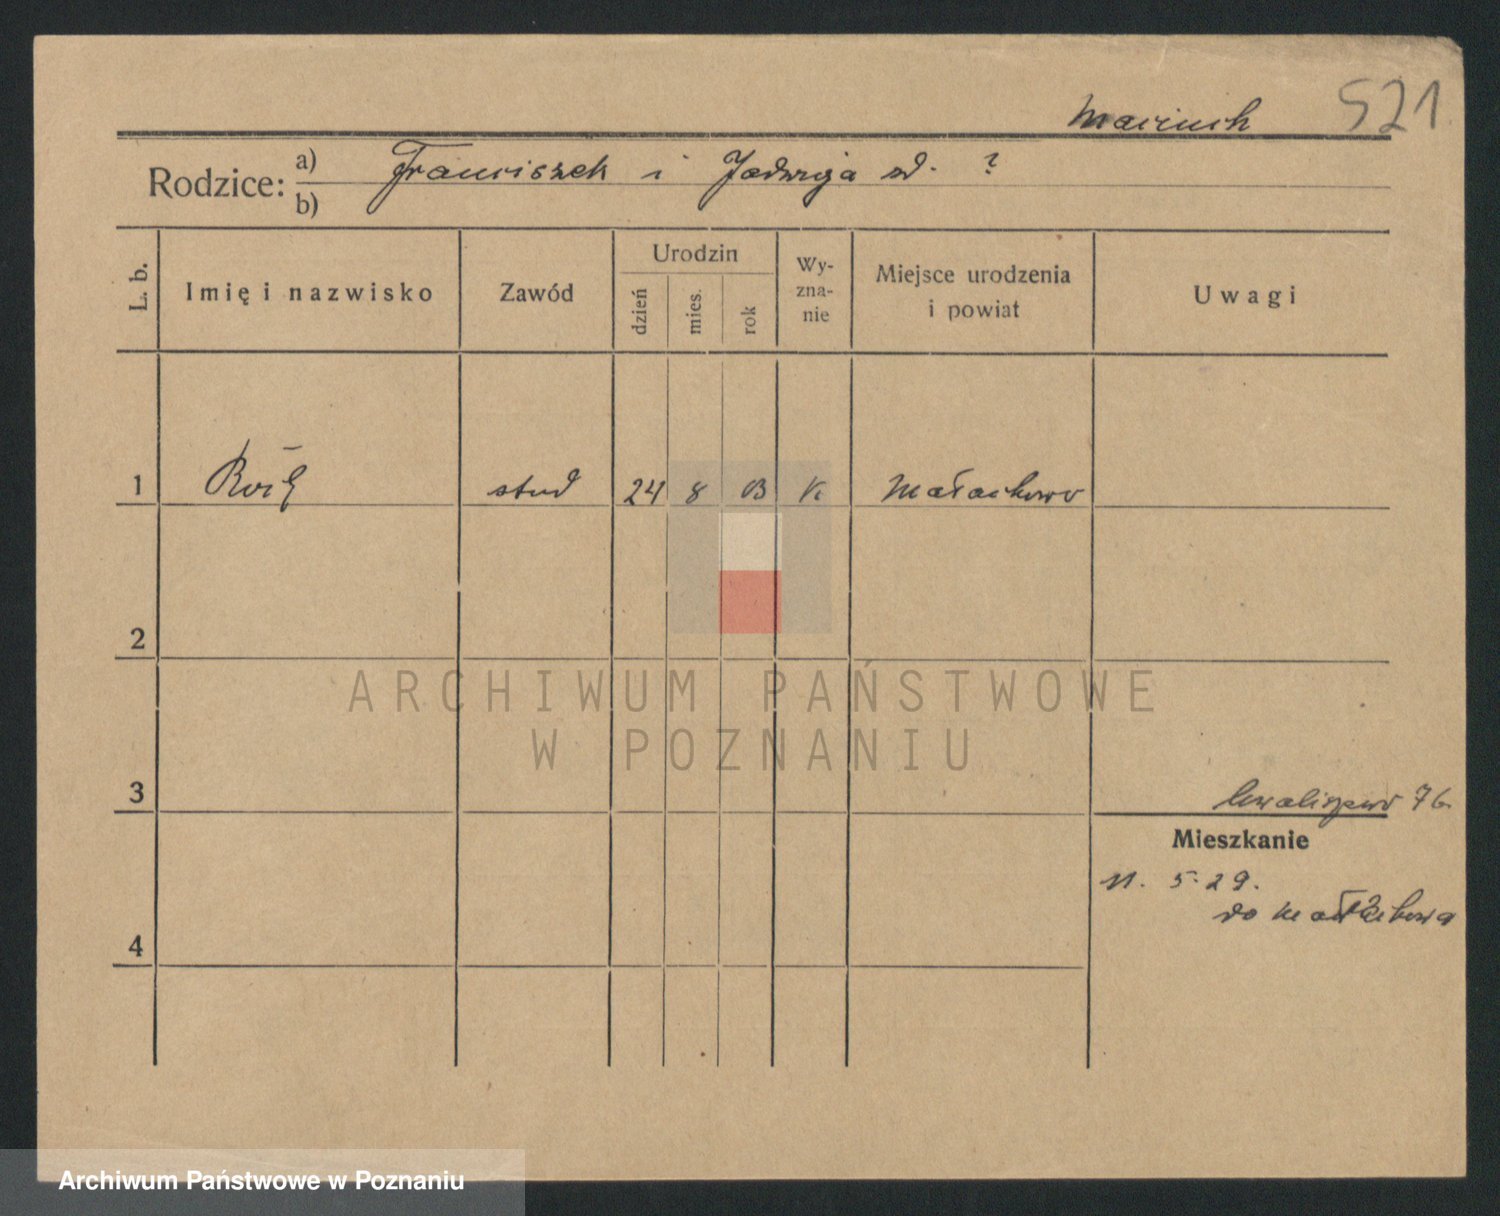 521
Rodzice: a) Franciszek i Jadwiga
b) ?
L. b.
Imię i nazwisko
Zawód
Urodzin
dzień
mies.
rok
Wy-
zna-
nie
Miejsce urodzenia
i powiat
Uwagi
1 stud 24 8 K Małachowo
2
3
76
Mieszkanie
11. 5 29.
do
4
ARCHIWUM PAŃSTWOWE
W POZNANIU
Archiwum Państwowe w Poznaniu